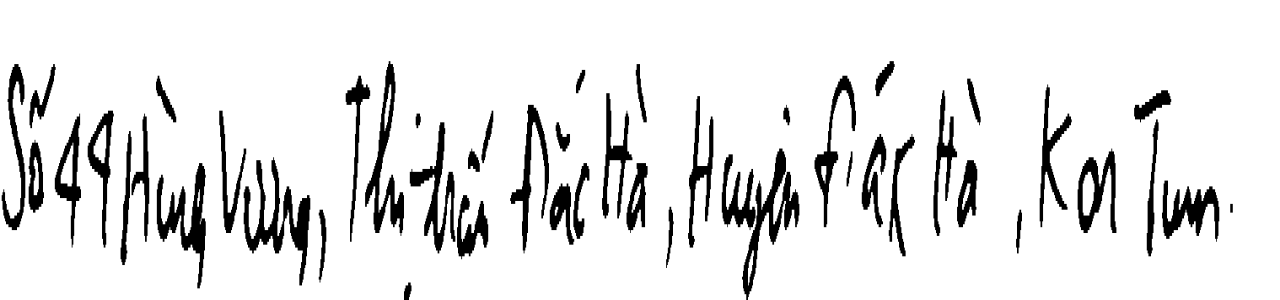 Số 44 Hùng Vương, Thị trấn Đắc Hà, Huyện Đắk Hà, Kon Tum.